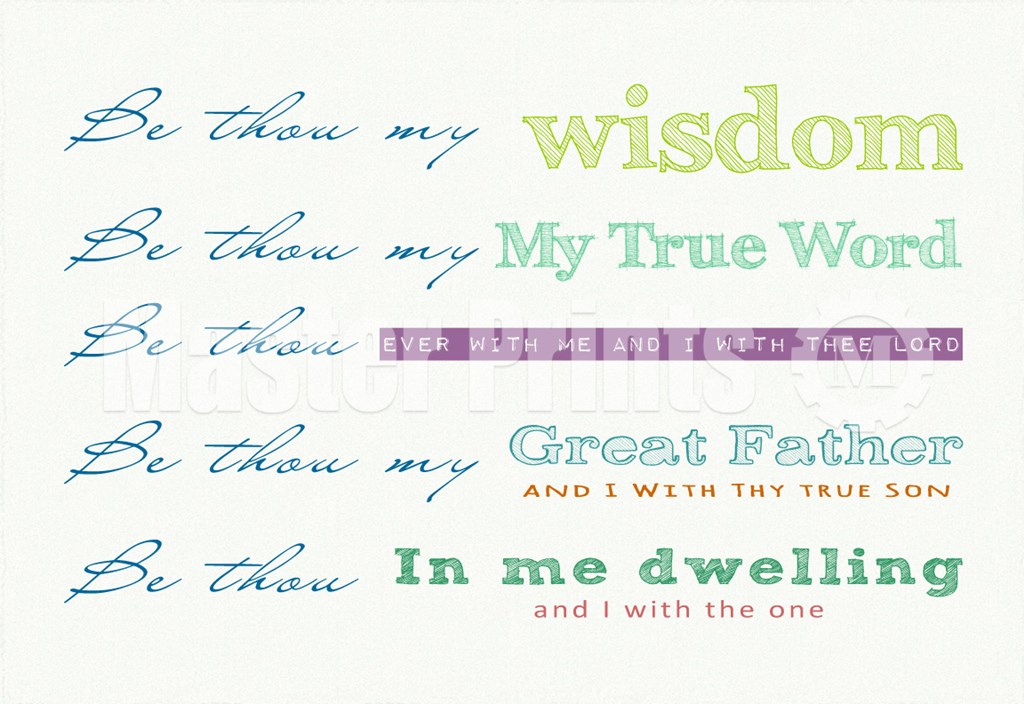 Be thou my wisdom
Be thou my My True Word
Be thou EVER WITH ME AND I WITH THEE LORD
Master Prints M
Be thou my Great Father
AND I WITH THY TRUE SON
Be thou In me dwelling
and I with the one